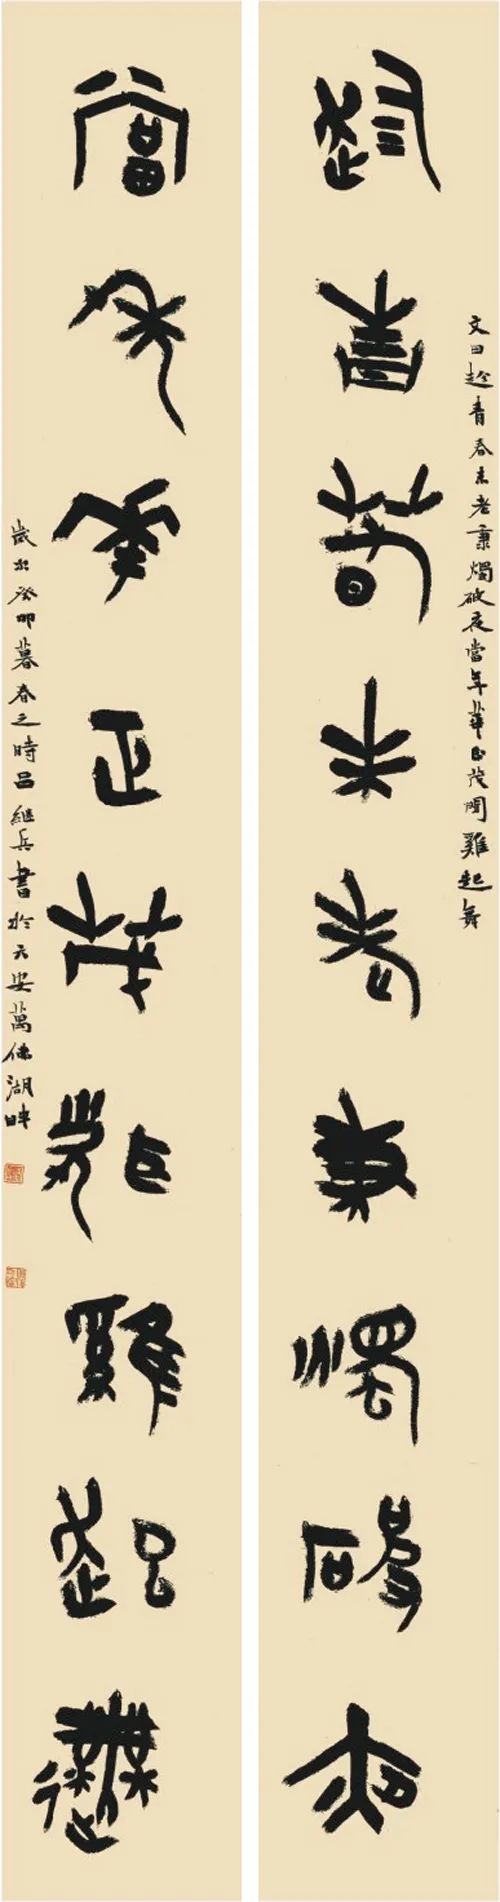 趁青春未老秉燭破夜
文曰趁青春未老秉燭破夜當年華正茂聞雞起舞
當年華正茂聞雞起舞
歲次癸卯暮春之時呂繼兵書於六安萬佛湖畔